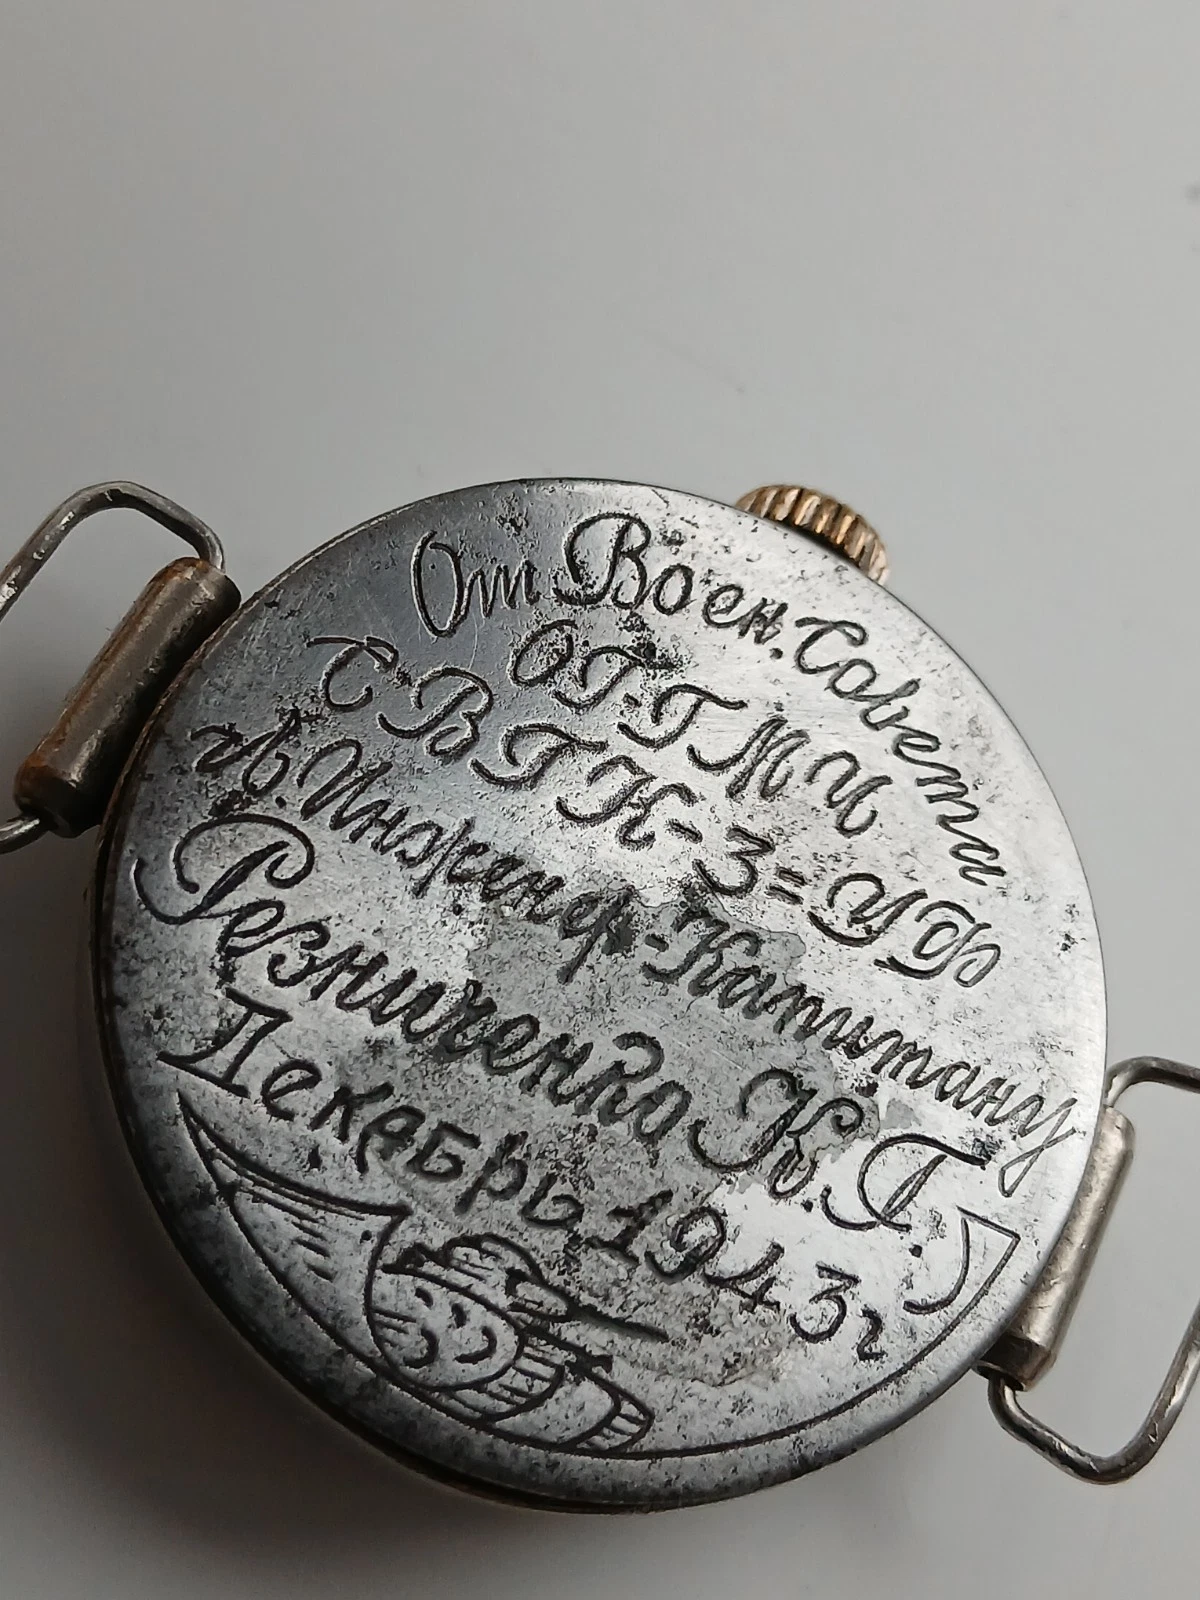 От Воен. Совета
ОГ-ГМЧ
С ВГК-3=УФ
Л. Инженер-Капитану
Резниченко К. Г.
Декабрь 1943г